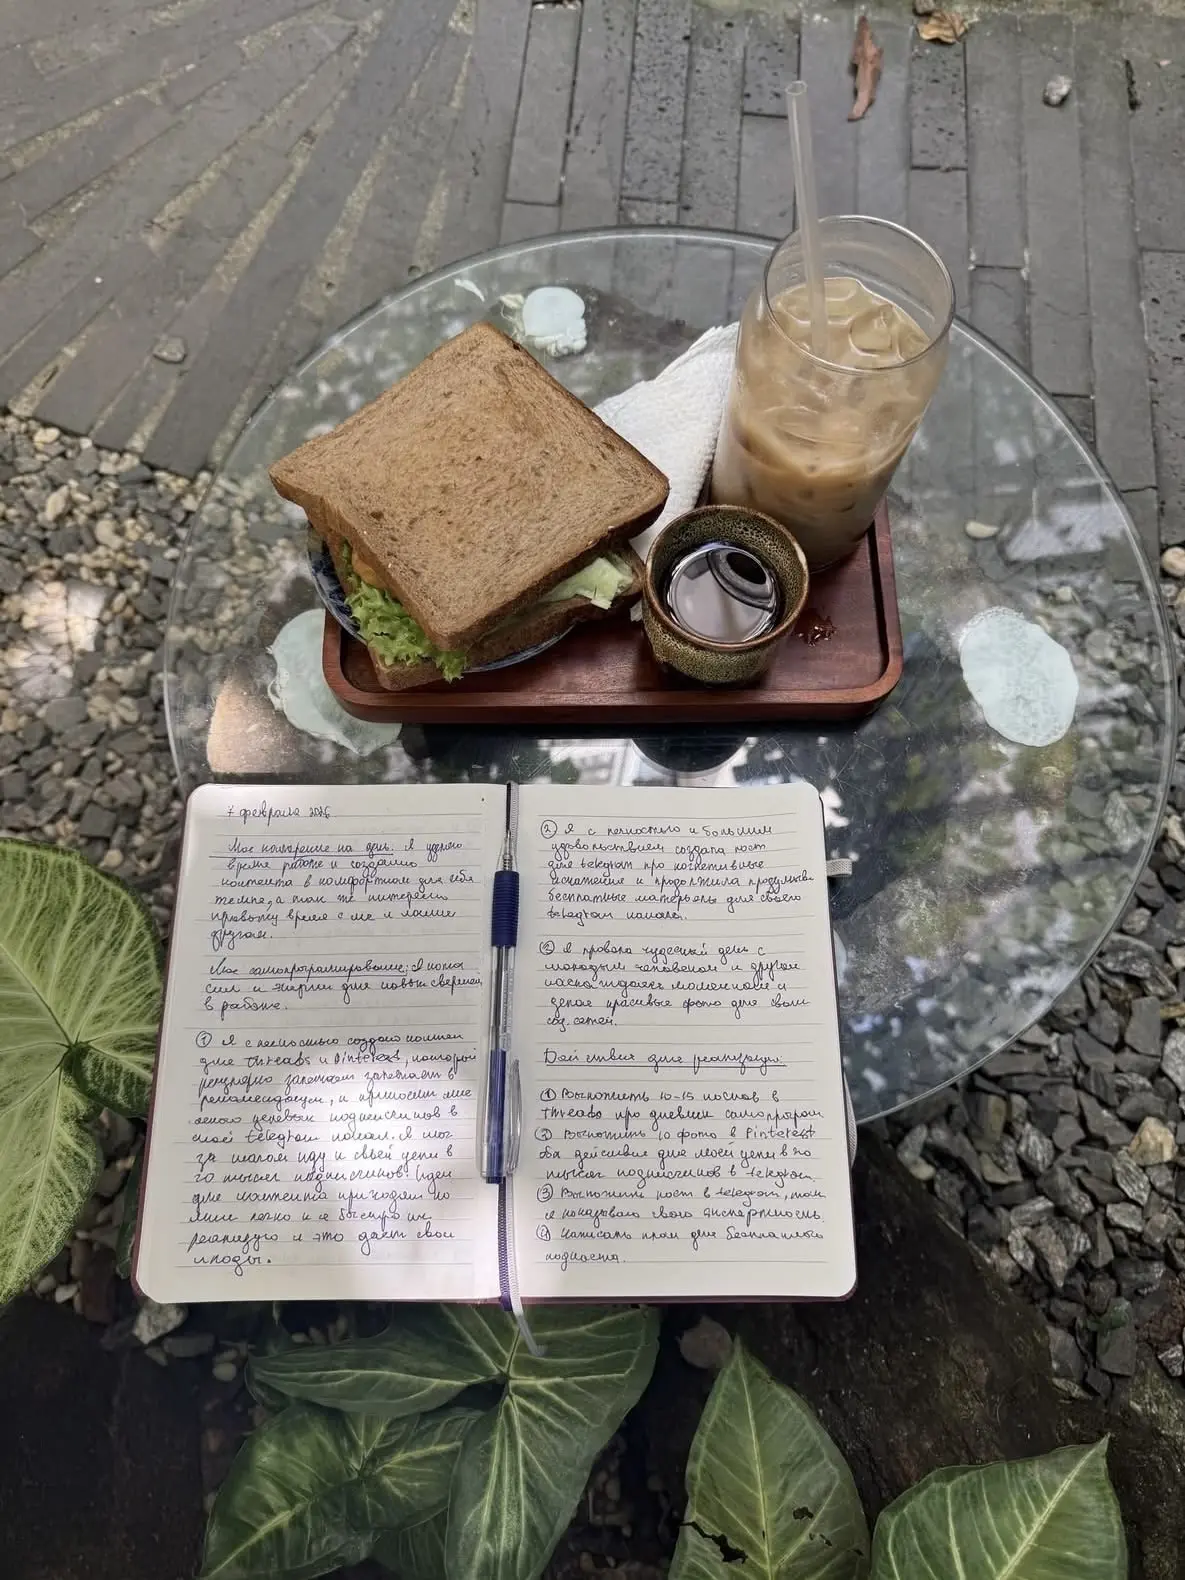 7 февраля 2026
Мое намерение на день: Я уделяю
время работе и созданию
контента в комфортном для себя
темпе, а так же интересно
провожу время с мч и нашим
другом.
Мое самопрограммирование: Я полна
сил и энергии для новых свершений
в работе.
① Я с легкостью создаю контент
для Threads и Pinterest, который
регулярно залетает в
рекомендации, и приносит мне
много целевых подписчиков в
мой telegram канал. Я шаг
за шагом иду к своей цели в
10 тысяч подписчиков! Идеи
для контента приходят ко
мне легко и я быстро их
реализую и это дает свои
плоды.
② Я с легкостью и большим
удовольствием создала пост
для telegram про когнитивные
искажения и продолжила продумывать
бесплатные материалы для своего
telegram канала.
③ Я провела чудесный день с
молодым человеком и другом
наслаждаясь моментом и
делая красивые фото для своих
соц. сетей.
Действия для реализации:
① Выложить 10-15 постов в
Threads про дневник самопрограм.
② Выложить 10 фото в Pinterest
Эти действия для моей цели в 10
тысяч подписчиков в telegram.
③ Выложить пост в telegram, так
я показываю свою экспертность.
④ Написать план для бесплатного
подкаста.